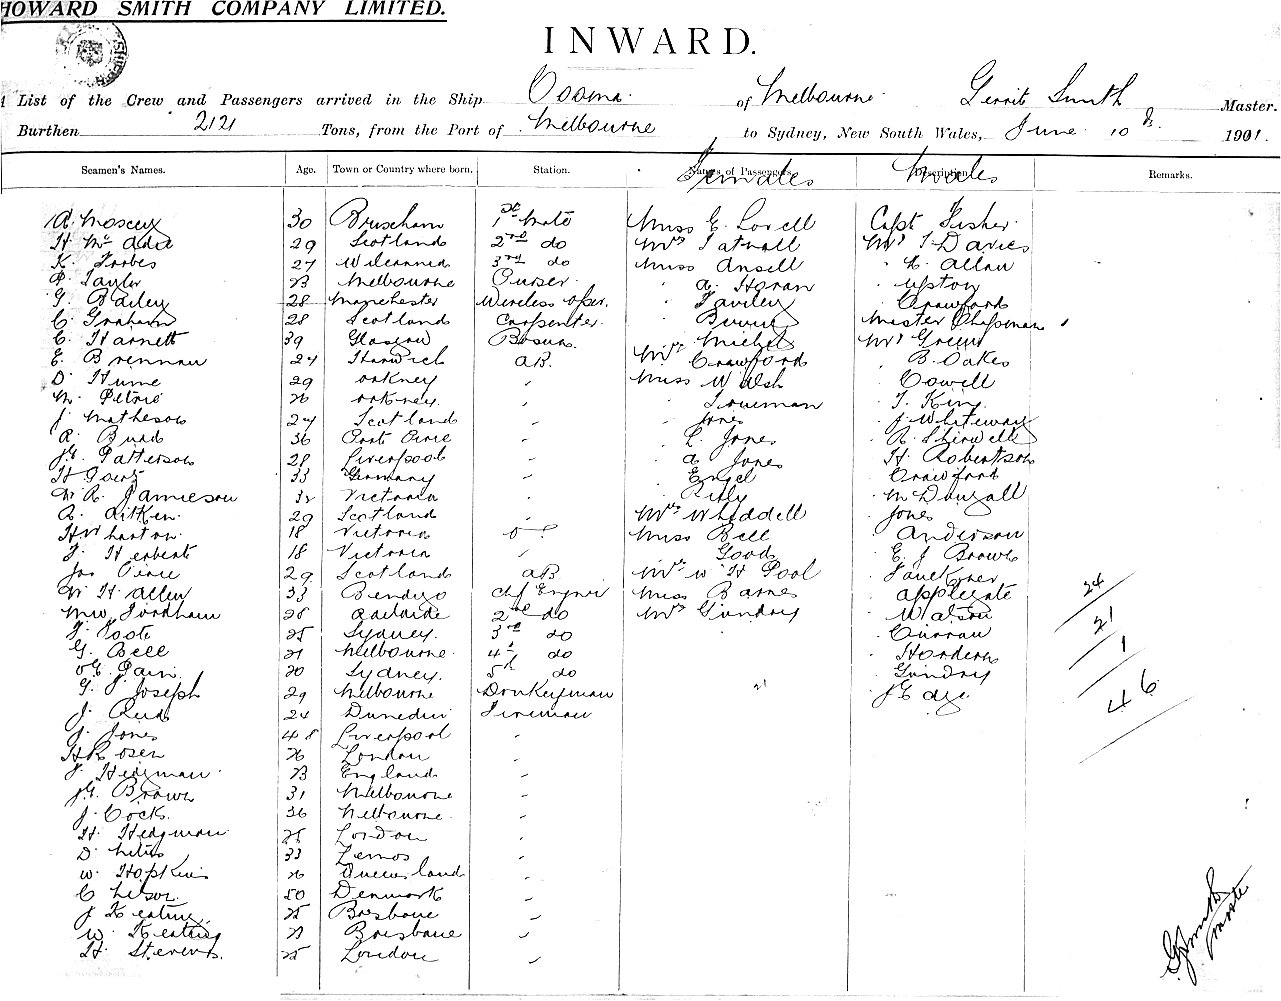 HOWARD SMITH COMPANY LIMITED.
INWARD.
List of the Crew and Passengers arrived in the Ship Cooma of Melbourne Gerrit Smith Master.
Burthen 2121 Tons, from the Port of Melbourne to Sydney, New South Wales, June 10th 1901.
Seamen's Names. Age. Town or Country where born. Station. Names of Passengers Females Description Males Remarks.
30 Brixham 1st Mate Miss E. Lovell Capt Fisher
29 Scotland 2nd do Mrs Tatnall Mr T Davies
K. Forbes 27 Wilcannia 3rd do Miss Ansell " Allan
P. Taylor 23 Melbourne Purser " A. Horan " Upton
G. Bailey 28 Manchester Wireless oper. " Crawford
C. Graham 28 Scotland Carpenter " Master Chapman
C. Harnett 39 Glasgow Bosun " Michel Mr Green
E. Brennan 24 Harwich AB. Mrs Crawford B. Oakes
D. Hume 29 Orkney " Miss Walsh Cowell
M. Petrie 26 Orkney " T. King
J. Matheson 24 Scotland " Jones J. Whiteway
R. 36 Port Pirie " L. Jones R. Shirwell
J.G. Patterson 28 Liverpool " A Jones H. Robertson
33 Germany " Engel Crawford
W. R. Jamieson Victoria " McDougall
R. Aitken 29 Scotland " Mrs Whiddell Jones
H Wharton 18 Victoria Miss Bell Anderson
J. Herbert 18 Victoria " Good E. J Brown
Jas Pirie 29 Scotland AB Mrs W H Pool Faulkner
W. H Allen 33 Bendigo Chf Engnr Miss Barnes Applegate
MW Fordham 28 Adelaide 2nd do Mrs Gundry Watson
F. Foote 25 Sydney. 3rd do Curran
G. Bell 21 Melbourne 4th do Hordern
Pain 20 Sydney. 5th do Gundry
G. J Joseph 29 Melbourne Donkeyman 21 J C Age
J. Reid 24 Dunedin Fireman
J. Jones 48 Liverpool "
H Rosen 26 London "
J. Hedgman 23 England "
J.G. Brown 31 Melbourne "
J. Cock 36 Melbourne "
H. Hedgman 28 London "
D. 33 Lemos "
W. Hopkins 26 Queensland "
C 50 Denmark "
J Keating 25 Brisbane "
W. Keating 23 Brisbane "
H. Stevens 25 London "
24
21
1
46
G Smith
Master